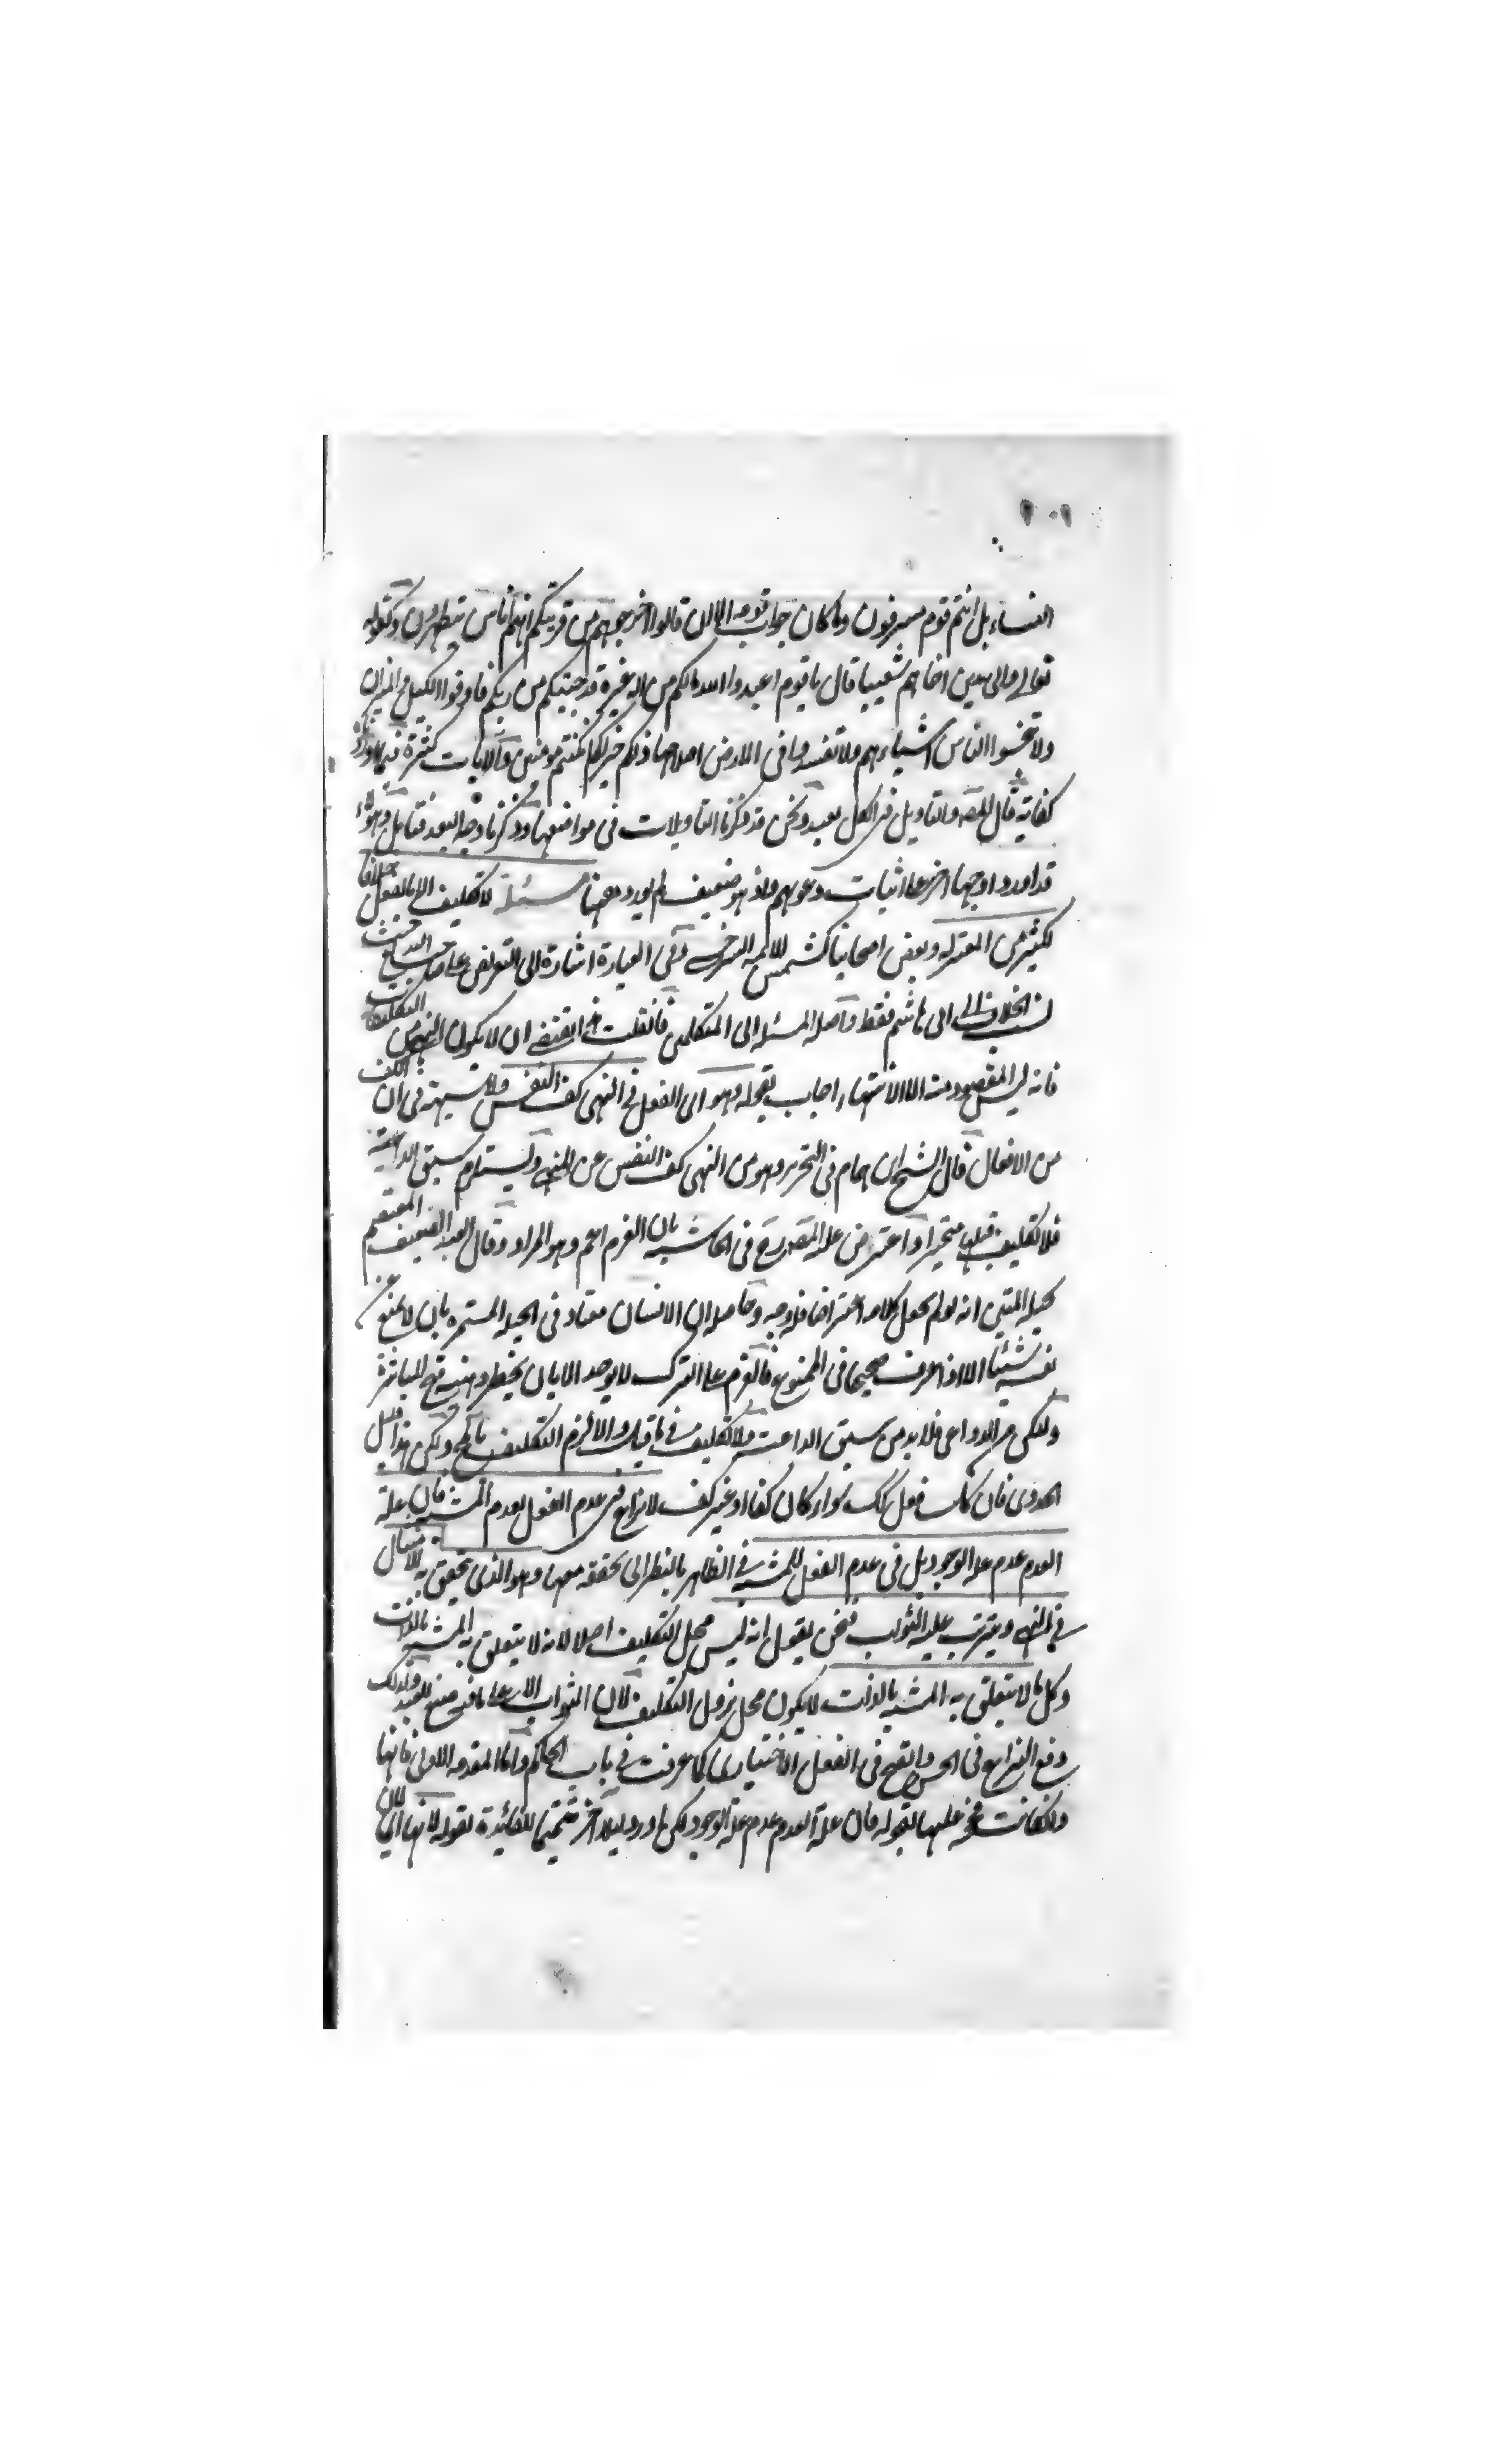 النساء بل انتم قوم مسرفون وما كان جواب قومه الا ان قالوا اخرجوهم من قريتكم انهم اناس يتطهرون وكقوله
تعالى والى مدين اخاهم شعيبا قال يا قوم اعبدوا الله ما لكم من اله غيره قد جئتكم من ربكم فاوفوا الكيل والميزان
ولا تبخسوا الناس اشياءهم ولا تفسدوا فى الارض اصلاحها ذلكم خير لكم ان كنتم مومنين والآيات كثيرة فيما
كفاية قال المصه والتاويل فى الكل بعيد ونحن قد ذكرنا التاويلات فى مواضعها وذكرنا وجه البعد فتامل وهولاء
قد اوردوا وجها اخر على اثبات دعوىهم واذ هو ضعيف لم يورد ههنا مسئلة لا تكليف الا بالفعل خلافا
لكثير من المعتزله وبعض اصحابنا كشمس الائمه السرخسى وفى العبارة اشارة الى التعريض على صاحب البديع حيث
نسب الخلاف الى ابى هاشم فقط واصل المسئله الى المتكلمين فانقلت اقتضى ان لا يكون النهى من التكليفات
فانه ليس المقصود منه الا الانتهاء اجاب بقوله وهو اى الفعل فى النهى كف النفس ولا شبهة فى ان الكف
من الافعال قال الشيخ ابن همام فى التحرير وهو من النهى كف النفس عن المنهى ويستلزم سبق الداعية
فلا تكليف قبلها متحيرا واعترض عليه المصه رح فى الحاشيه بان العزم اعم وهو المراد وقال العبد الضعيف المعتصم
بحبله المتين انه لو لم يجعل كلامه اعتراضا فله وجه وحاصله ان الانسان معتاد فى الجبله المستمره بان لا يمنع عن
نفسه شيئا الا اذا عرف صحيحا فى الممنوع فالعزم على الترك لا يوجد الا بان يخطر ذهنه قبح المباشرة
ولكن من الدواعى فلا بد من سبق الداعية ولا تكليف فى ما قبله والا لزم التكليف بالمح ولكن هذا قليل
الجدوى فان كل فعل كذلك سواء كان كفا او غير كف لا نزاع فى عدم الفعل لعدم المشيه فان علة
العدم عدم علة الوجود بل فى عدم الفعل للمشيه فى الظاهر بالنظر الى تحققه معها وهو الذى يتحقق به الامتثال
فى النهى ويترتب عليه الثواب فنحن نقول انه ليس محل التكليف اصلا لانه لا يتعلق به المشيه بالذات
وكل ما لا يتعلق به المشيه بالذات لا يكون محل نزول التكليف لان الثواب الا على ما فيه صنع للعبد ولذلك
وقع النزاع فى الحسن والقبح فى الفعل الاختيارى كما عرفت فى باب الحاكم واما المقدمه الاولى فانها
وانكانت عليها بقوله فان علة العدم عدم علة الوجود لكن اورد دليلا آخر تتميما للفائدة بقوله لانها اى لان